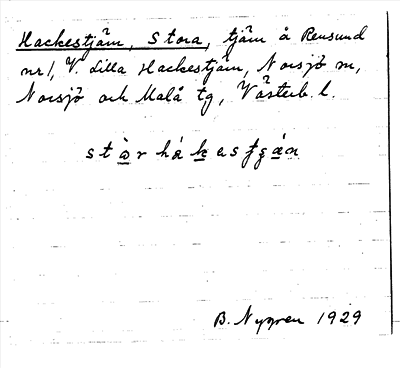 Hackestjärn, Stora, tjärn å Rensund
nr 1, V. Lilla Hackestjärn, Norsjö sn,
Norsjö och Malå tg, Västerb. l.
B. Nygren 1929